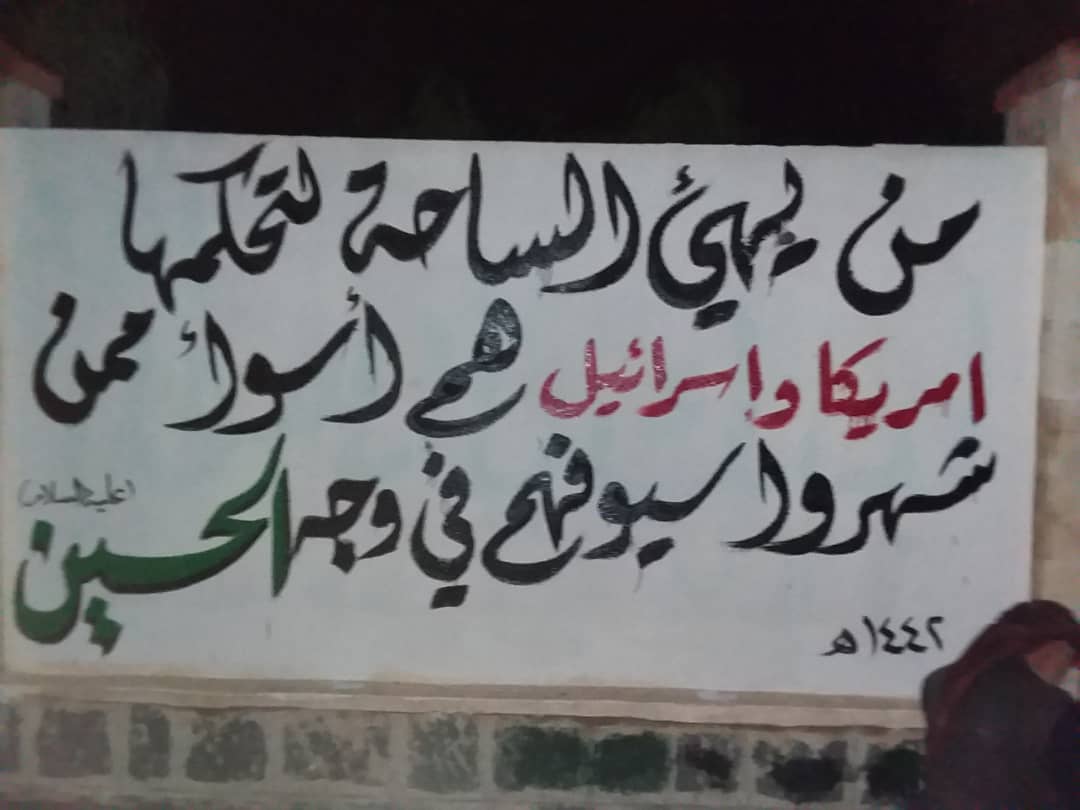 من يهيئ الساحة لتحكمها
امريكا وإسرائيل هم أسوأ ممن
شهروا سيوفهم في وجه الحسين (عليه السلام)
١٤٤٢هـ